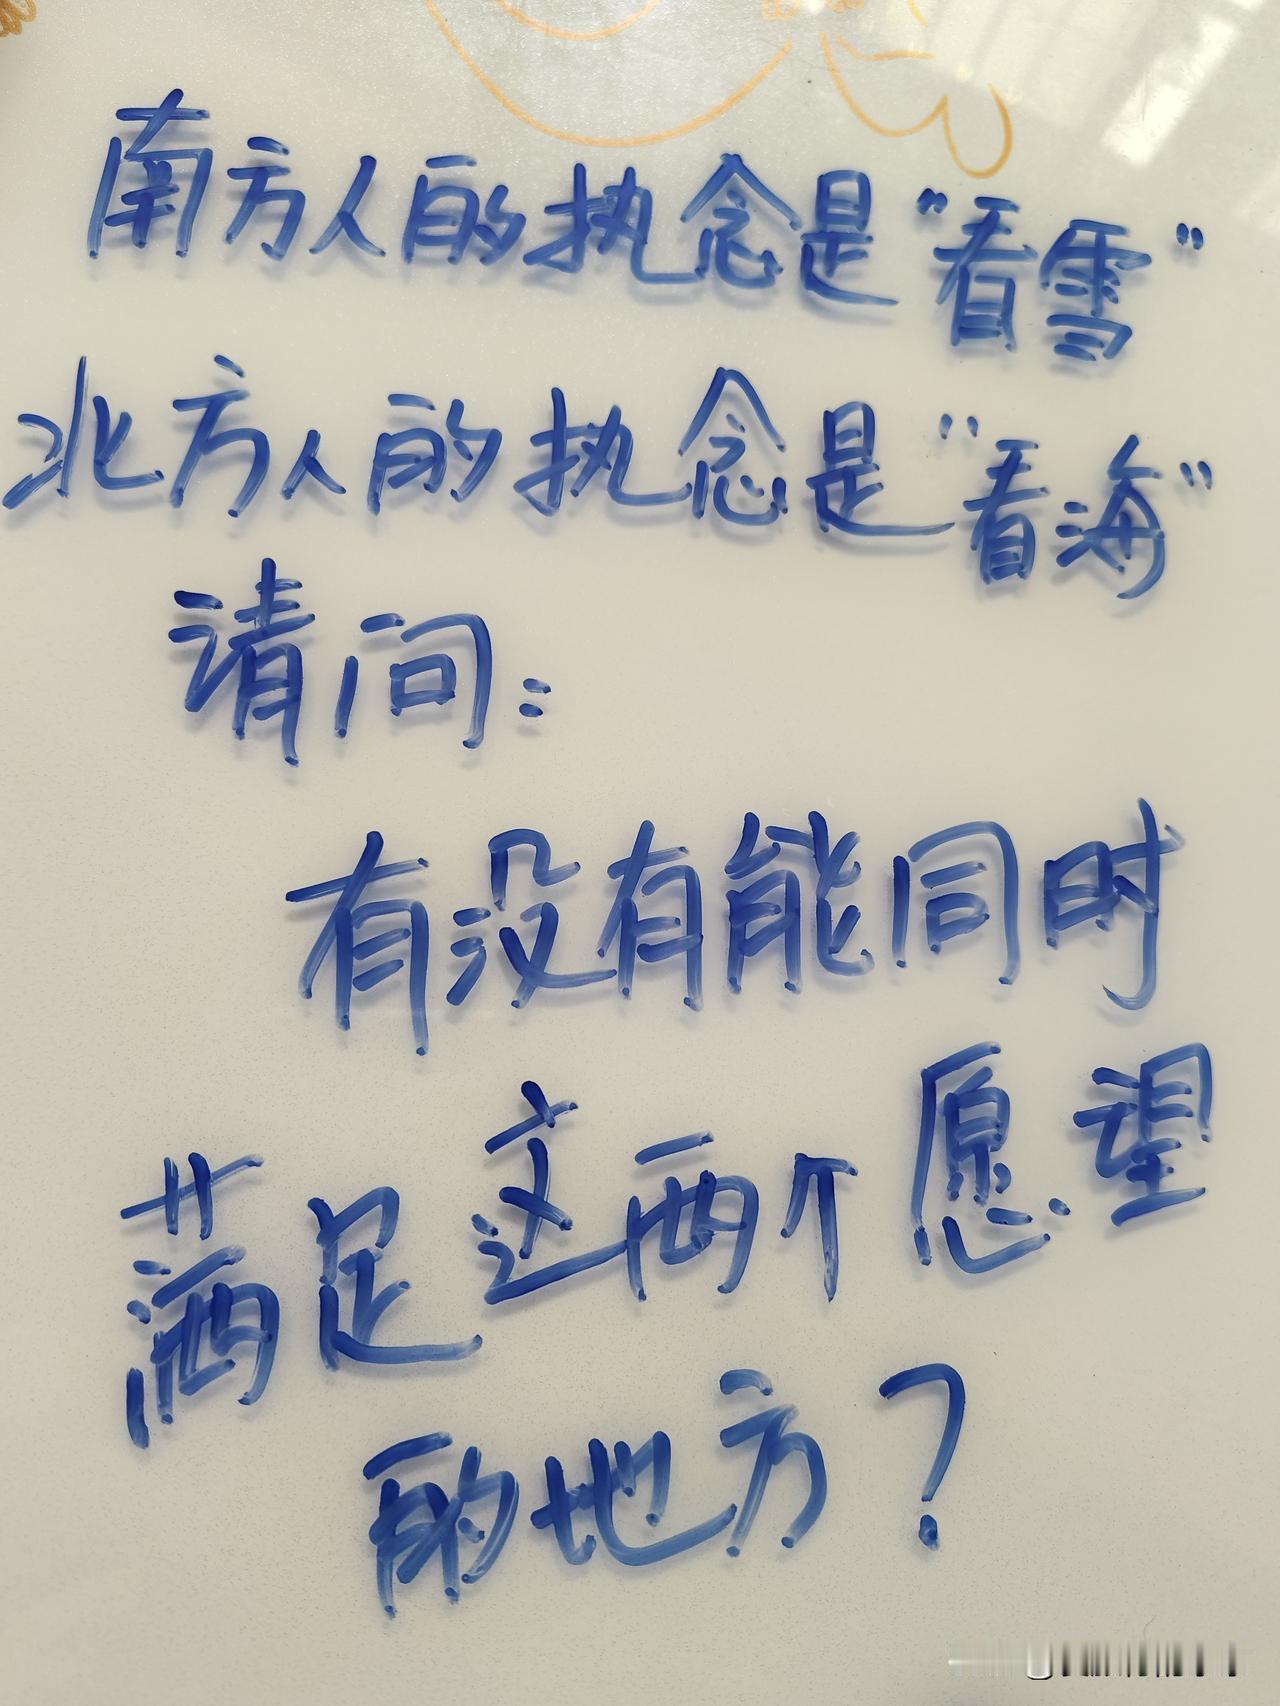 南方人的执念是“看雪”
北方人的执念是“看海”
请问：
有没有能同时
满足这两个愿望
的地方？